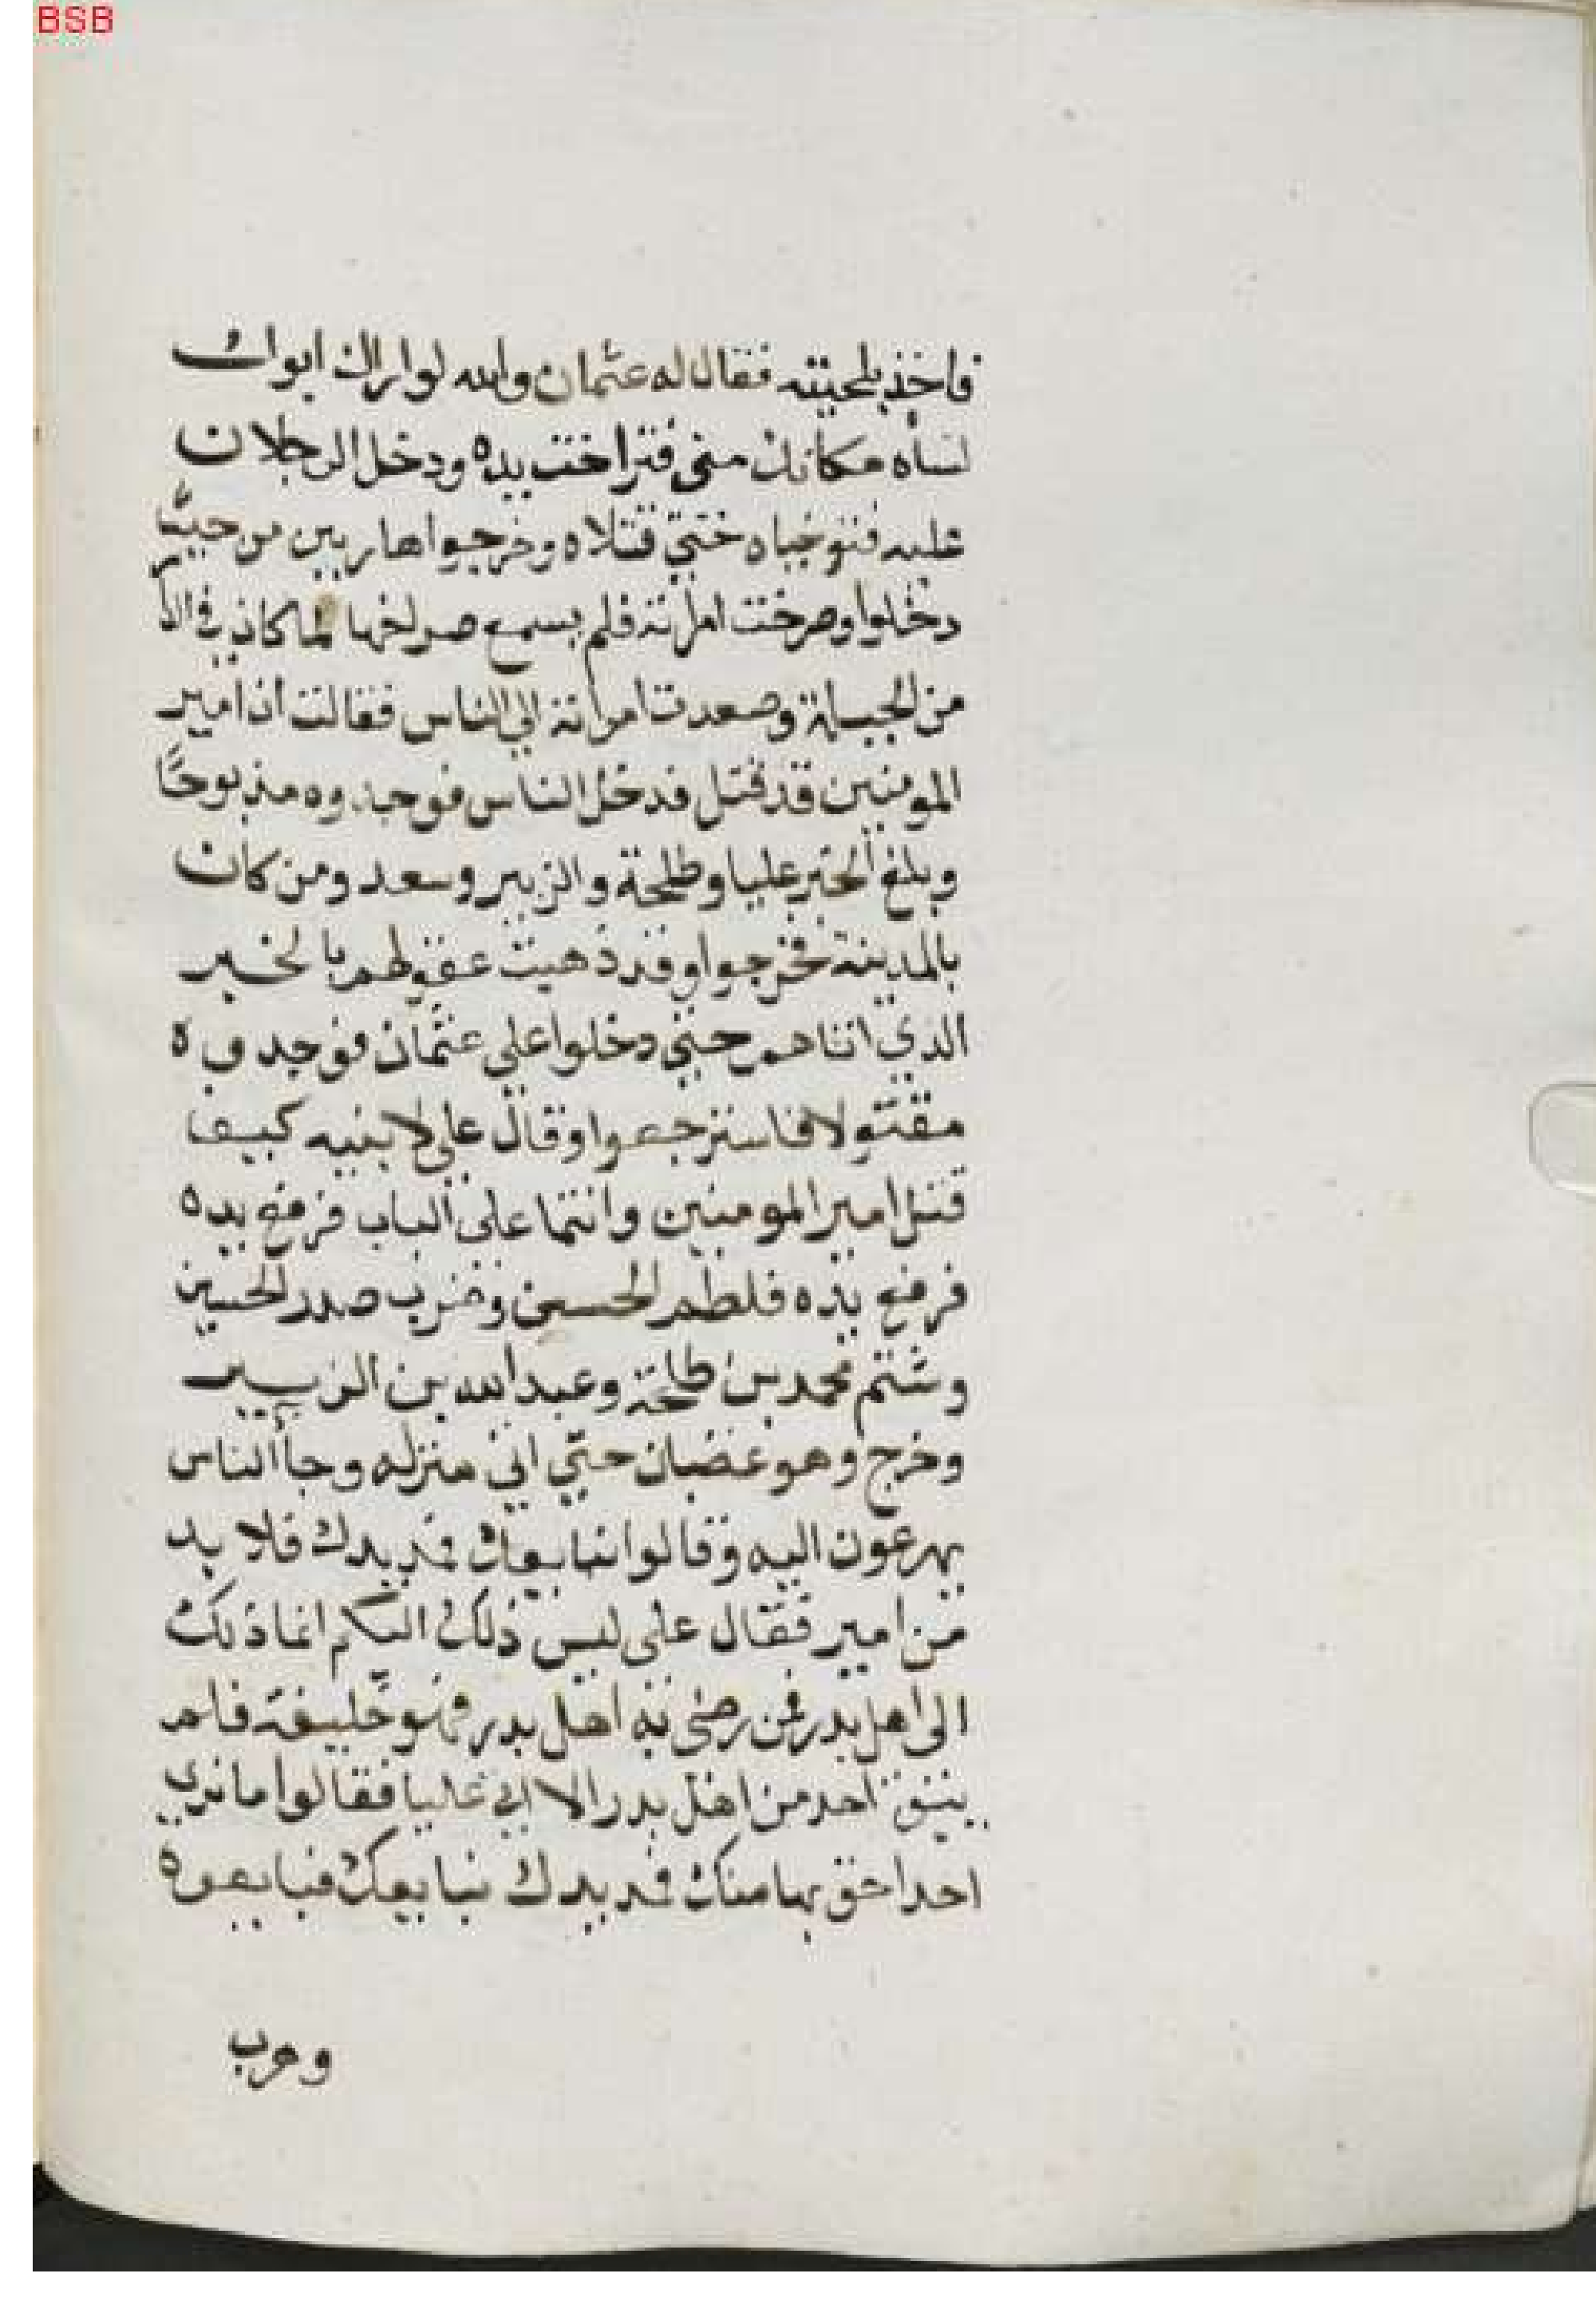 BSB
فاخذ بلحيته فقال له عثمان والله لو اراك ابوك
لساه مكانك مني فتراخت يده ودخل الرجلان
عليه فتوجياه حتي قتلاه وخرجوا هاربين من حيث
دخلوا وصرخت امراته فلم يسمع صراخها لما كان في الد
من الجبلة وصعدت امراته الي الناس فقالت ان امير
المومنين قد قتل فدخل الناس فوجدوه مذبوحًا
وبلغ الخبر عليا وطلحة والزبير وسعد ومن كان
بالمدينة فخرجوا وقد ذهبت عقولهم بالخبر
الذي اتاهم حتي دخلوا علي عثمان فوجدوه
مقتولا فاسترجعوا وقال علي لابنيه كيف
قتل امير المومنين وانتما على الباب فرفع يده
فرفع يده فلطم الحسين وضرب صدر الحسين
وشتم محمد بن طلحة وعبد الله بن الزبير
وخرج وهو غضبان حتي اتي منزله وجأ الناس
يهرعون اليه وقالوا نبايعك فمد يدك فلا بد
من امير فقال على ليس ذلك اليكم انما ذلك
الى اهل بدر فمن رضى به اهل بدر فهو خليفة فلم
يبق احد من اهل بدر الا اتي عليا فقالوا ما نري
احدا احق بها منك فمد يدك نبايعك فبايعوه
وهرب